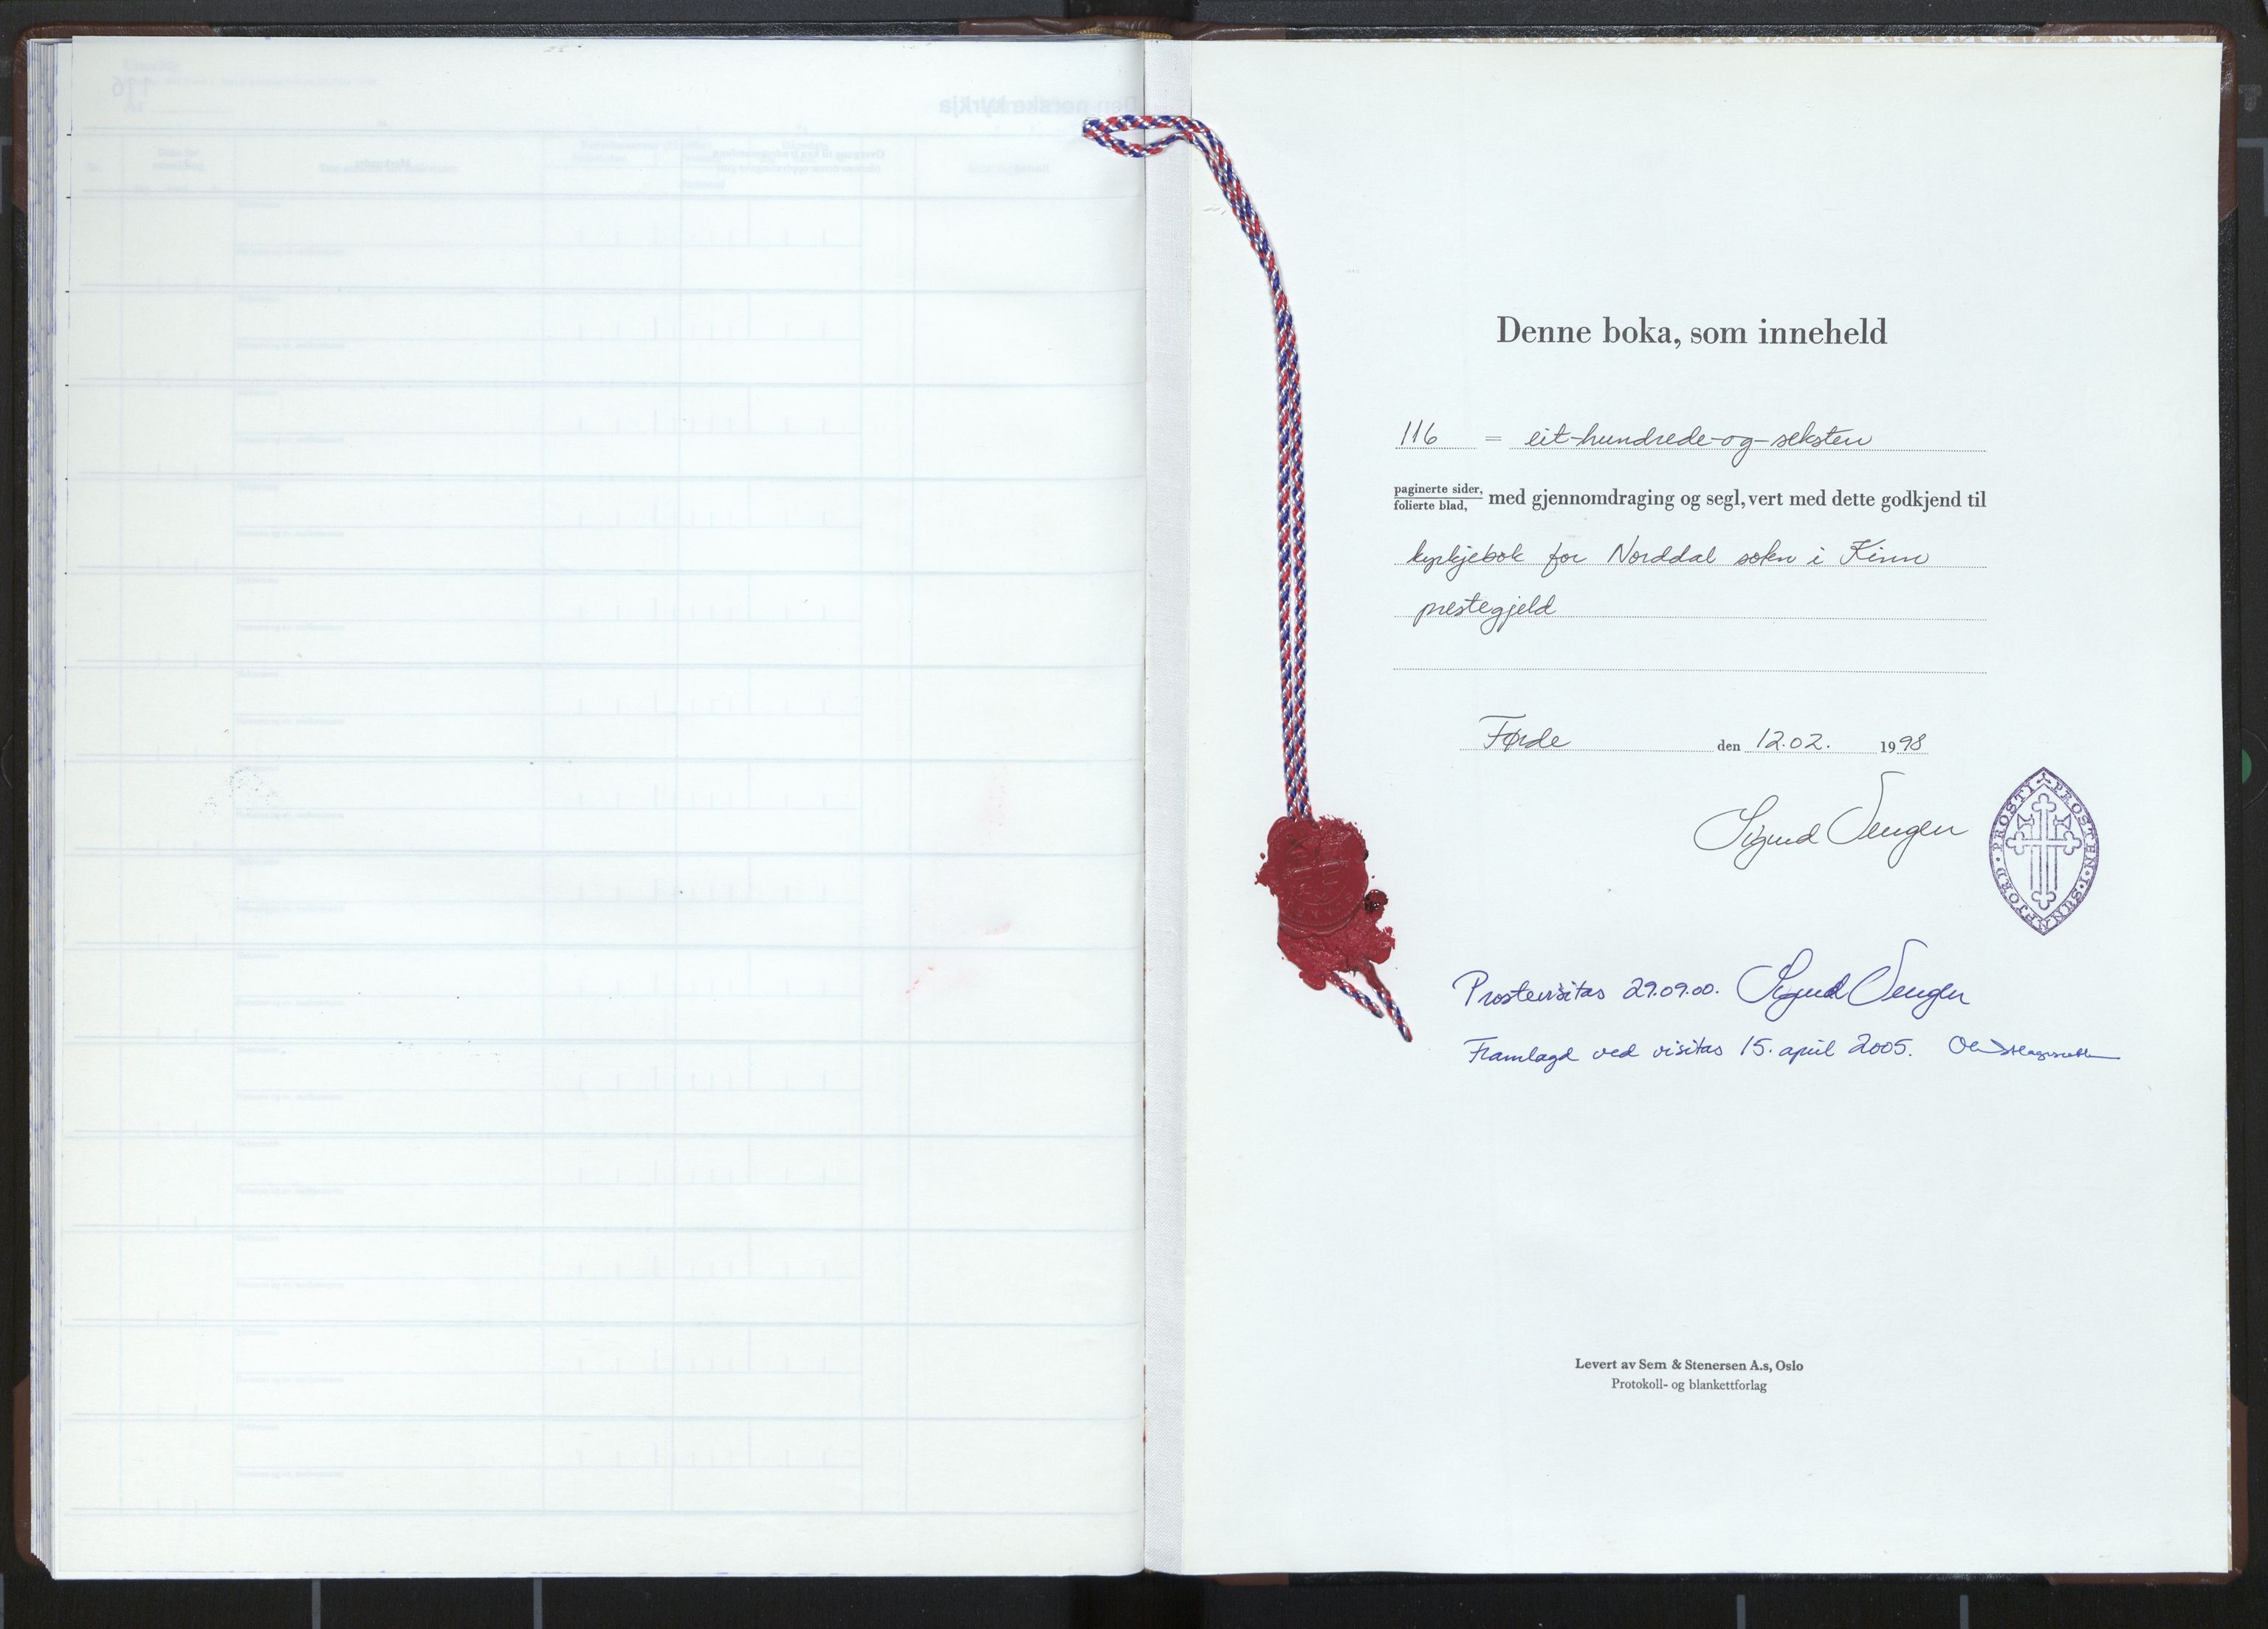 Denne boka, som inneheld
116 = eit-hundrede-og-seksten
paginerte sider,
folierte blad, med gjennomdraging og segl, vert med dette godkjend til
kyrkjebok for Norddal sokn i Kinn
prestegjeld
Førde den 12.02. 1998
Sigurd Vengen
PROSTEN I SUNNFJORD PROSTI
Prostevisitas 29.09.00. Sigurd Vengen
Framlagd ved visitas 15. april 2005.
Levert av Sem & Stenersen A.s, Oslo
Protokoll- og blankettforlag